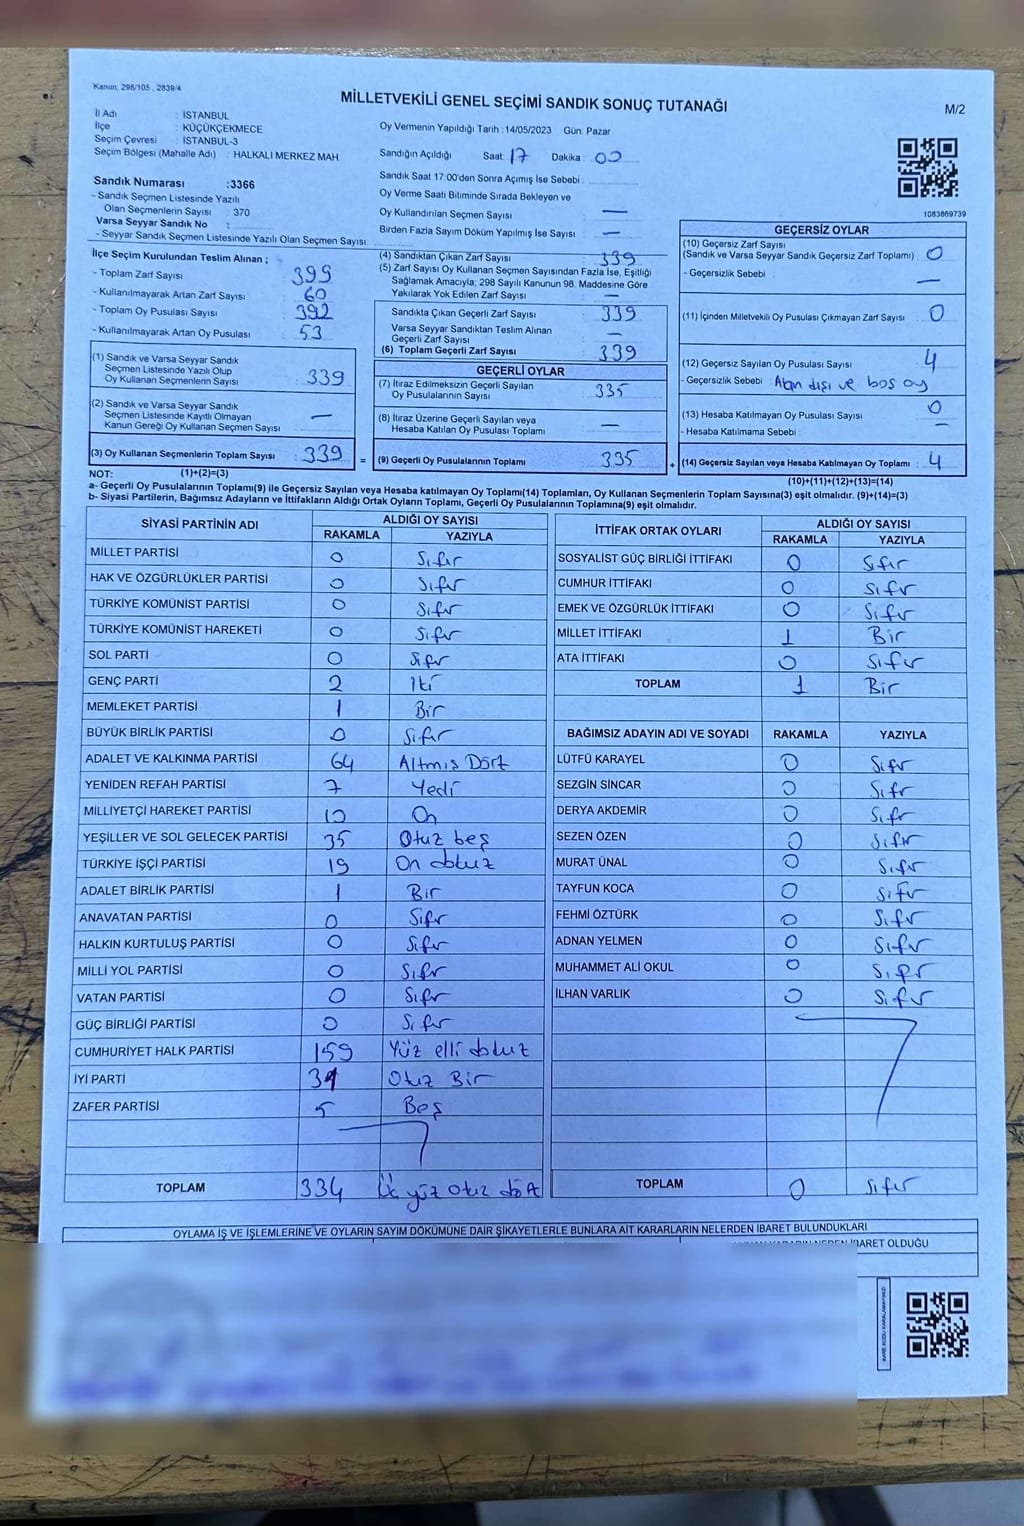 Kanun, 298/105 , 2839/4
MİLLETVEKİLİ GENEL SEÇİMİ SANDIK SONUÇ TUTANAĞI
M/2
İl Adı : İSTANBUL
İlçe : KÜÇÜKÇEKMECE
Seçim Çevresi : İSTANBUL-3
Seçim Bölgesi (Mahalle Adı) : HALKALI MERKEZ MAH
Oy Vermenin Yapıldığı Tarih :14/05/2023 Gün: Pazar
Sandığın Açıldığı Saat: 17 Dakika : 00
Sandık Saat 17:00'den Sonra Açımış İse Sebebi :
Oy Verme Saati Bitiminde Sırada Bekleyen ve
Oy Kullandırılan Seçmen Sayısı —
Birden Fazla Sayım Döküm Yapılmış İse Sayısı : —
1083869739
Sandık Numarası :3366
- Sandık Seçmen Listesinde Yazılı
Olan Seçmenlerin Sayısı : 370
Varsa Seyyar Sandık No :
- Seyyar Sandık Seçmen Listesinde Yazılı Olan Seçmen Sayısı:
İlçe Seçim Kurulundan Teslim Alınan ;
- Toplam Zarf Sayısı 399
- Kullanılmayarak Artan Zarf Sayısı 60
- Toplam Oy Pusulası Sayısı 392
- Kullanılmayarak Artan Oy Pusulası 53
(1) Sandık ve Varsa Seyyar Sandık
Seçmen Listesinde Yazılı Olup
Oy Kullanan Seçmenlerin Sayısı : 339
(2) Sandık ve Varsa Seyyar Sandık
Seçmen Listesinde Kayıtlı Olmayan
Kanun Gereği Oy Kullanan Seçmen Sayısı : —
(3) Oy Kullanan Seçmenlerin Toplam Sayısı : 339 =
(4) Sandıktan Çıkan Zarf Sayısı : 339
(5) Zarf Sayısı Oy Kullanan Seçmen Sayısından Fazla İse, Eşitliği
Sağlamak Amacıyla, 298 Sayılı Kanunun 98. Maddesine Göre
Yakılarak Yok Edilen Zarf Sayısı —
Sandıkta Çıkan Geçerli Zarf Sayısı : 339
Varsa Seyyar Sandıktan Teslim Alınan
Geçerli Zarf Sayısı —
(6) Toplam Geçerli Zarf Sayısı : 339
GEÇERLİ OYLAR
(7) İtiraz Edilmeksizin Geçerli Sayılan
Oy Pusulalarının Sayısı : 335
(8) İtiraz Üzerine Geçerli Sayılan veya
Hesaba Katılan Oy Pusulası Toplamı —
(9) Geçerli Oy Pusulalarının Toplamı : 335 +
GEÇERSİZ OYLAR
(10) Geçersiz Zarf Sayısı
(Sandık ve Varsa Seyyar Sandık Geçersiz Zarf Toplamı) : 0
- Geçersizlik Sebebi : —
(11) İçinden Milletvekili Oy Pusulası Çıkmayan Zarf Sayısı : 0
(12) Geçersiz Sayılan Oy Pusulası Sayısı : 4
- Geçersizlik Sebebi : Alan dışı ve boş oy
(13) Hesaba Katılmayan Oy Pusulası Sayısı : 0
- Hesaba Katılmama Sebebi : —
(14) Geçersiz Sayılan veya Hesaba Katılmayan Oy Toplamı : 4
NOT: (1)+(2)=(3)
(10)+(11)+(12)+(13)=(14)
a- Geçerli Oy Pusulalarının Toplamı(9) ile Geçersiz Sayılan veya Hesaba katılmayan Oy Toplamı(14) Toplamları, Oy Kullanan Seçmenlerin Toplam Sayısına(3) eşit olmalıdır. (9)+(14)=(3)
b- Siyasi Partilerin, Bağımsız Adayların ve İttifakların Aldığı Ortak Oyların Toplamı, Geçerli Oy Pusulalarının Toplamına(9) eşit olmalıdır.
SİYASİ PARTİNİN ADI ALDIĞI OY SAYISI
RAKAMLA YAZIYLA
MİLLET PARTİSİ 0 Sıfır
HAK VE ÖZGÜRLÜKLER PARTİSİ 0 Sıfır
TÜRKİYE KOMÜNİST PARTİSİ 0 Sıfır
TÜRKİYE KOMÜNİST HAREKETİ 0 Sıfır
SOL PARTİ 0 Sıfır
GENÇ PARTİ 2 İki
MEMLEKET PARTİSİ 1 Bir
BÜYÜK BİRLİK PARTİSİ 0 Sıfır
ADALET VE KALKINMA PARTİSİ 64 Altmış Dört
YENİDEN REFAH PARTİSİ 7 Yedi
MİLLİYETÇİ HAREKET PARTİSİ 10 On
YEŞİLLER VE SOL GELECEK PARTİSİ 35 Otuz beş
TÜRKİYE İŞÇİ PARTİSİ 19 On dokuz
ADALET BİRLİK PARTİSİ 1 Bir
ANAVATAN PARTİSİ 0 Sıfır
HALKIN KURTULUŞ PARTİSİ 0 Sıfır
MİLLİ YOL PARTİSİ 0 Sıfır
VATAN PARTİSİ 0 Sıfır
GÜÇ BİRLİĞİ PARTİSİ 0 Sıfır
CUMHURİYET HALK PARTİSİ 159 Yüz elli dokuz
İYİ PARTİ 31 Otuz Bir
ZAFER PARTİSİ 5 Beş
TOPLAM 334 Üç yüz Otuz dört
İTTİFAK ORTAK OYLARI ALDIĞI OY SAYISI
RAKAMLA YAZIYLA
SOSYALİST GÜÇ BİRLİĞİ İTTİFAKI 0 Sıfır
CUMHUR İTTİFAKI 0 Sıfır
EMEK VE ÖZGÜRLÜK İTTİFAKI 0 Sıfır
MİLLET İTTİFAKI 1 Bir
ATA İTTİFAKI 0 Sıfır
TOPLAM 1 Bir
BAĞIMSIZ ADAYIN ADI VE SOYADI RAKAMLA YAZIYLA
LÜTFÜ KARAYEL 0 Sıfır
SEZGİN SİNCAR 0 Sıfır
DERYA AKDEMİR 0 Sıfır
SEZEN ÖZEN 0 Sıfır
MURAT ÜNAL 0 Sıfır
TAYFUN KOCA 0 Sıfır
FEHMİ ÖZTÜRK 0 Sıfır
ADNAN YELMEN 0 Sıfır
MUHAMMET ALİ OKUL 0 Sıfır
İLHAN VARLIK 0 Sıfır
TOPLAM 0 Sıfır
OYLAMA İŞ VE İŞLEMLERİNE VE OYLARIN SAYIM DÖKÜMÜNE DAİR ŞİKAYETLERLE BUNLARA AİT KARARLARIN NELERDEN İBARET BULUNDUKLARI
İBARET OLDUĞU